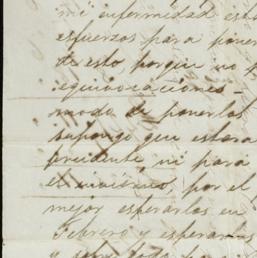 mi enfermedad est
esfuerzos para poner
de esto porque no p
equivocaciones
modo de ponerlos
supongo que estara
presidente ni para
el invierno, por el
mejor esperarlos en
Febrero y esperarlos
y sobre todo